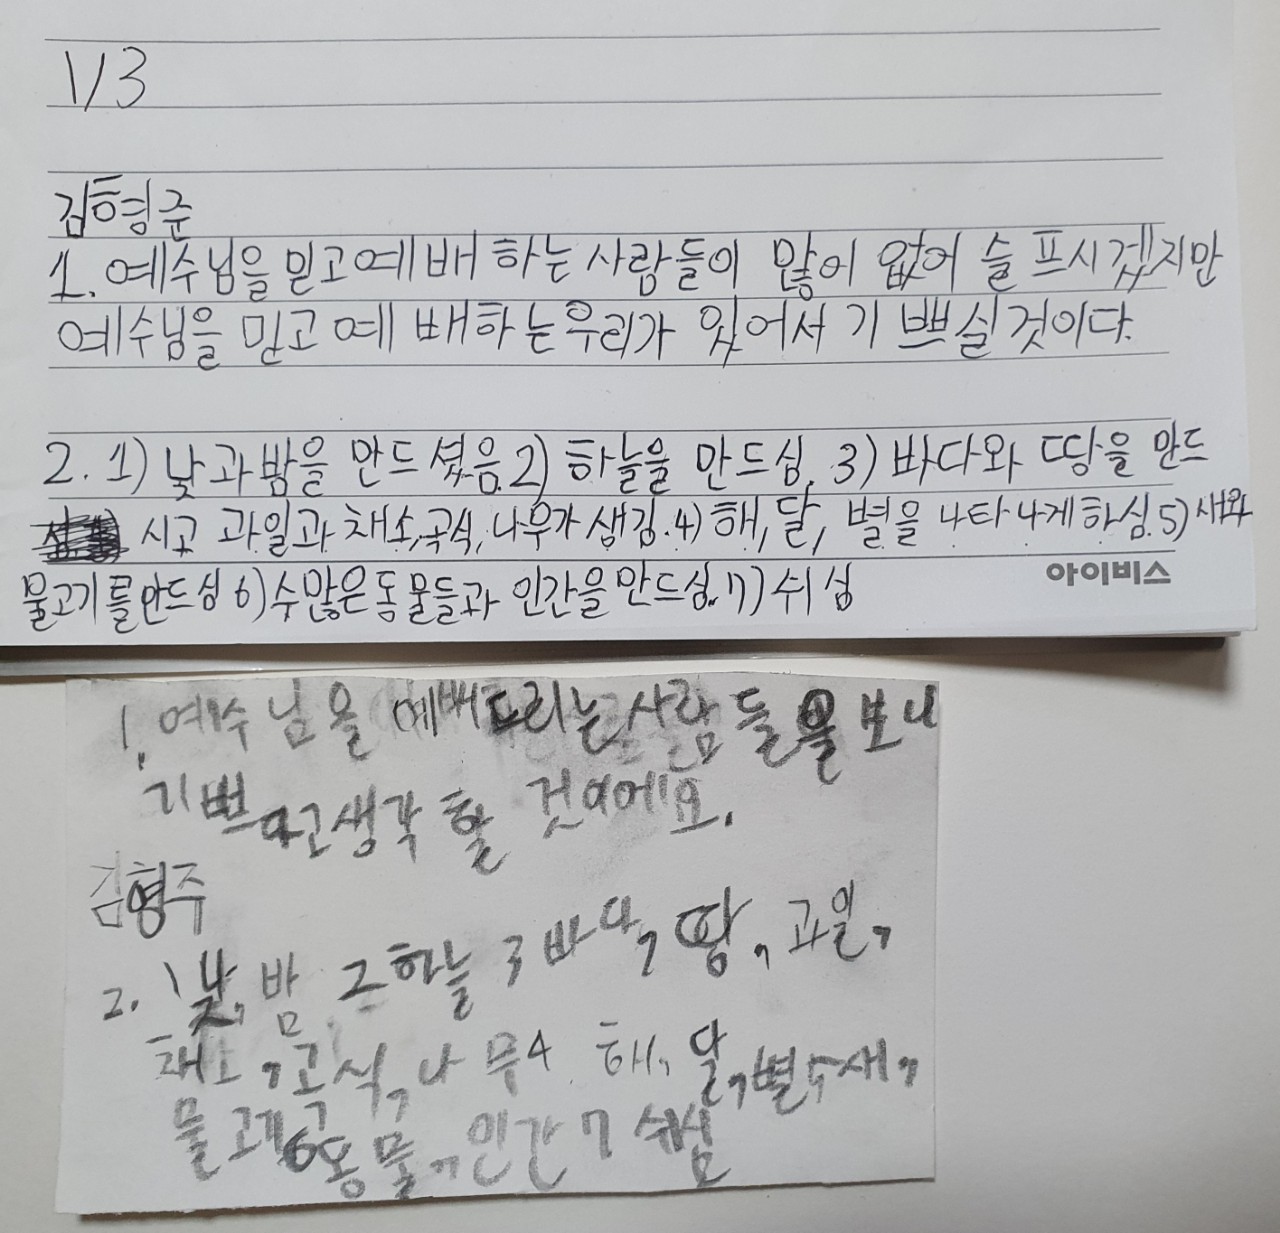 1/3
김형준
1. 예수님을 믿고 예배 하는 사람들이 많이 없어 슬프시겠지만
예수님을 믿고 예배하는 우리가 있어서 기쁘실 것이다.
2. 1) 낮과 밤을 만드셨음. 2) 하늘을 만드심. 3) 바다와 땅을 만드
시고 과일과 채소, 곡식, 나무가 생김. 4) 해, 달, 별을 나타나게 하심. 5) 새와
물고기를 만드심 6) 수많은 동물들과 인간을 만드심. 7) 쉬심
아이비스
1. 예수님을 예배드리는 사람들을 보니
기쁘다고 생각할 것이에요.
김형주
2. 1 낮, 밤 2 하늘 3 바다, 땅, 과일,
채소, 곡식, 나무 4 해, 달, 별 5 새,
물고기 6 동물, 인간 7 쉬심